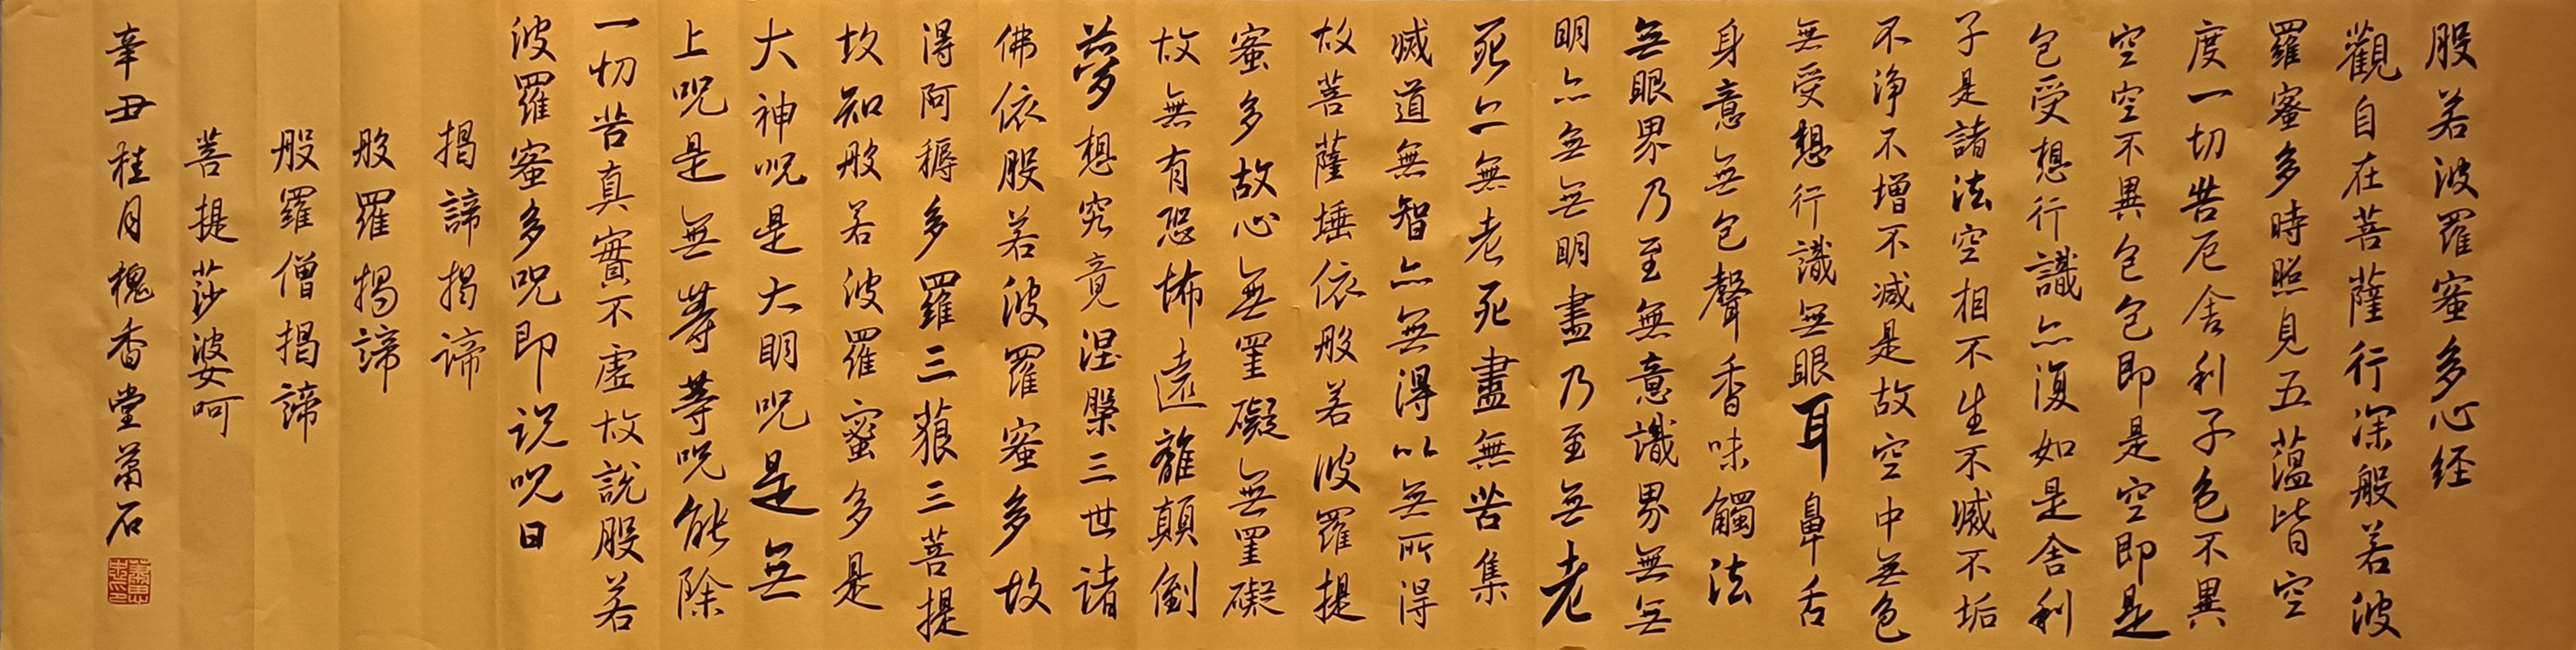 般若波羅蜜多心経
觀自在菩薩行深般若波
羅蜜多時照見五蘊皆空
度一切苦厄舍利子色不異
空空不異色色即是空空即是
色受想行識亦復如是舍利
子是諸法空相不生不滅不垢
不淨不增不减是故空中無色
無受想行識無眼耳鼻舌
身意無色聲香味觸法
無眼界乃至無意識界無無
明亦無無明盡乃至無老
死亦無老死盡無苦集
滅道無智亦無得以無所得
故菩薩埵依般若波羅提
蜜多故心無罣礙無罣礙
故無有恐怖遠離顛倒
夢想究竟涅槃三世諸
佛依般若波羅蜜多故
得阿耨多羅三藐三菩提
故知般若波羅蜜多是
大神呪是大明呪是無
上呪是無等等呪能除
一切苦真實不虛故說般若
波羅蜜多呪即説呪曰
揭諦揭諦
般羅揭諦
般羅僧揭諦
菩提莎婆呵
辛丑桂月槐香堂蕭石